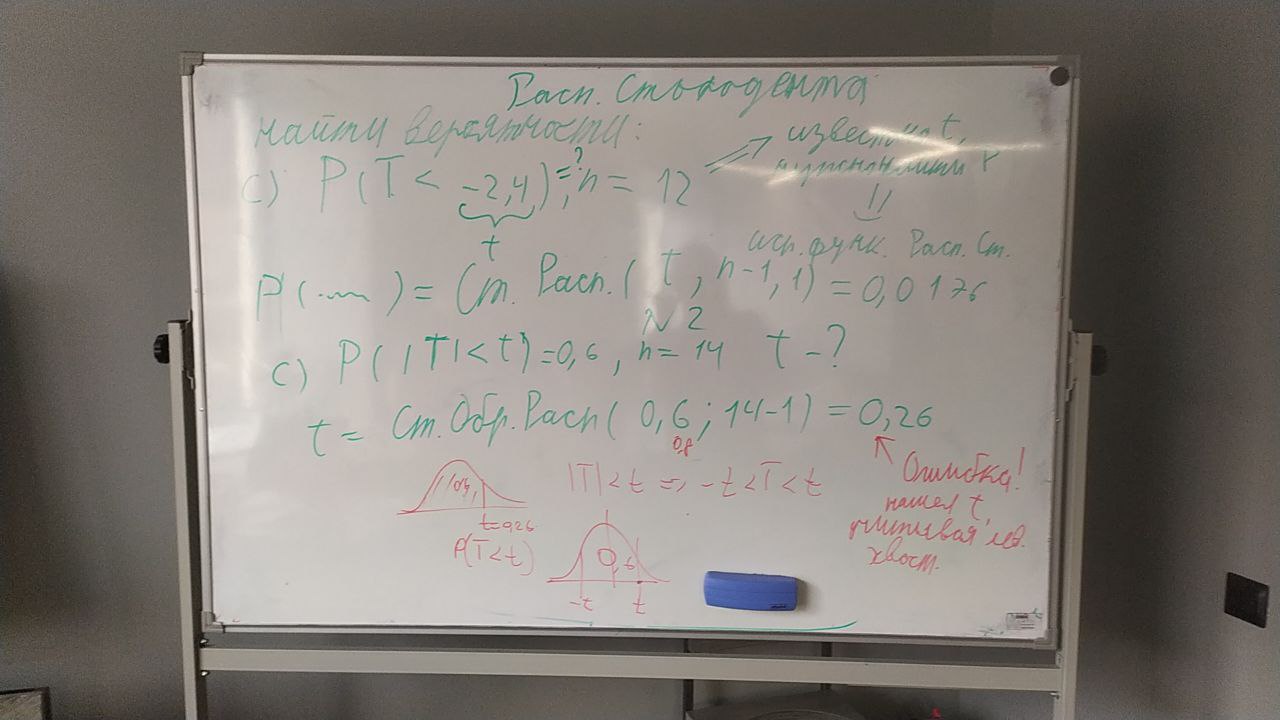 Расп. Стьюдента
найти вероятности:
c) P(T < -2,4) =?, n = 12
t
=> известно t,
нужно найти P
исп. функ. Расп. Ст.
P(...) = Ст. Расп.(t, n-1, 1) = 0,0176
№2
c) P(|T|<t)=0,6, n= 14 t - ?
t = Ст.Обр.Расп( 0,6; 14-1) = 0,26
0,8
Ошибка!
нашел t,
учитывая лев.
хвост.
|T|<t => -t<T<t
t=0,26
P(T<t)
0,6
-t t